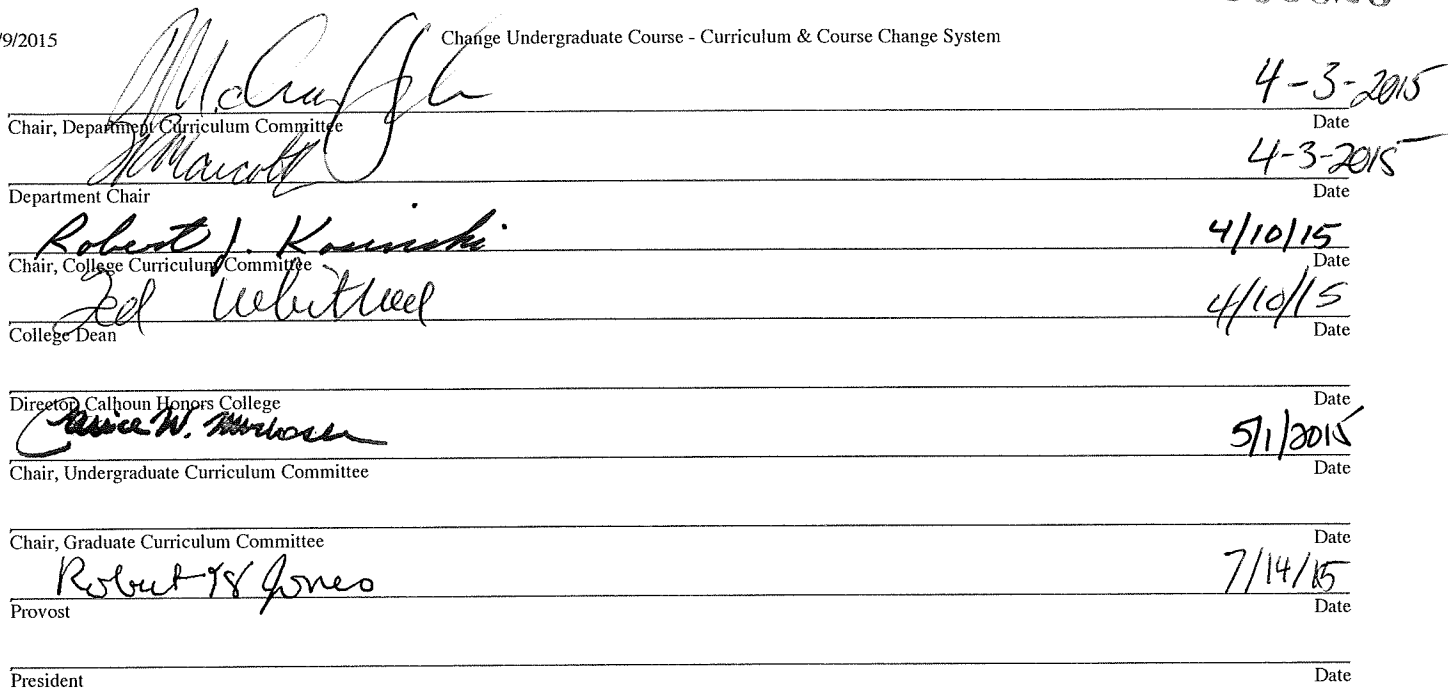 /9/2015 Change Undergraduate Course - Curriculum & Course Change System
4-3-2015
Chair, Department Curriculum Committee Date
4-3-2015
Department Chair Date
Robert J. Kosinski 4/10/15
Chair, College Curriculum Committee Date
4/10/15
College Dean Date
Director, Calhoun Honors College Date
Janice W. 5/1/2015
Chair, Undergraduate Curriculum Committee Date
Chair, Graduate Curriculum Committee Date
Robert H Jones 7/14/15
Provost Date
President Date